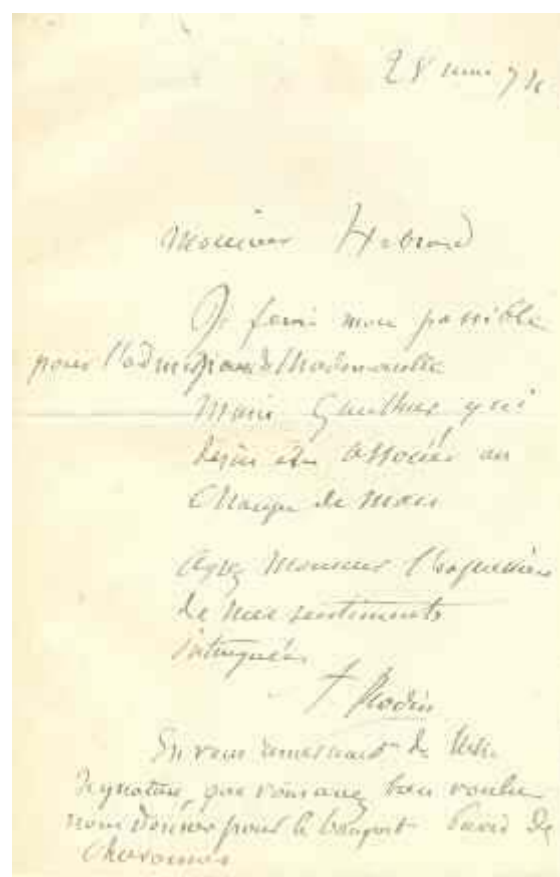 28 mai 9
Monsieur Hebrard
Je ferai mon possible
pour l'admission de Mademoiselle
Marie Gauthier qui
désire être associée au
Champ de Mars
Agréez Monsieur l'expression
de mes sentiments
distingués
Rodin
En vous remerciant de votre
signature, que vous avez bien voulu
nous donner pour le banquet Puvis de
Chavannes